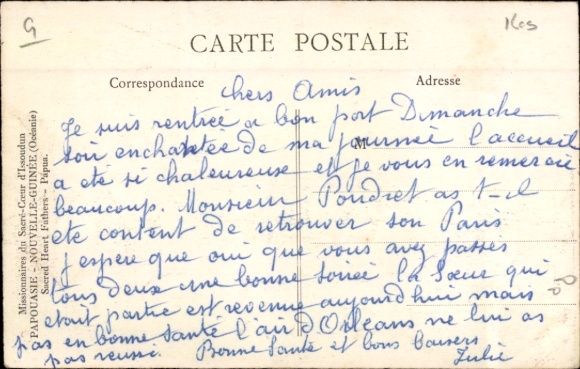 G
Kas
CARTE POSTALE
Correspondance
Adresse
Missionnaires du Sacré-Cœur d'Issoudun
PAPOUASIE - NOUVELLE-GUINÉE (Océanie)
Sacred Heart Fathers - Papua.
M
chers Amis
Je suis rentrée a bon port Dimanche
soir enchantée de ma journée l'accueil
a ete si chaleureuse et je vous en remercie
beaucoup. Monsieur Poudret as t-il
ete content de retrouver son Paris
j'espere que oui que vous avez passes
tous deux une bonne soirée la Sœur qui
etait partie est revenue aujourd'hui mais
pas en bonne santé l'air d'Orleans ne lui as
pas reussi. Bonne Santé et bons baisers
Julie